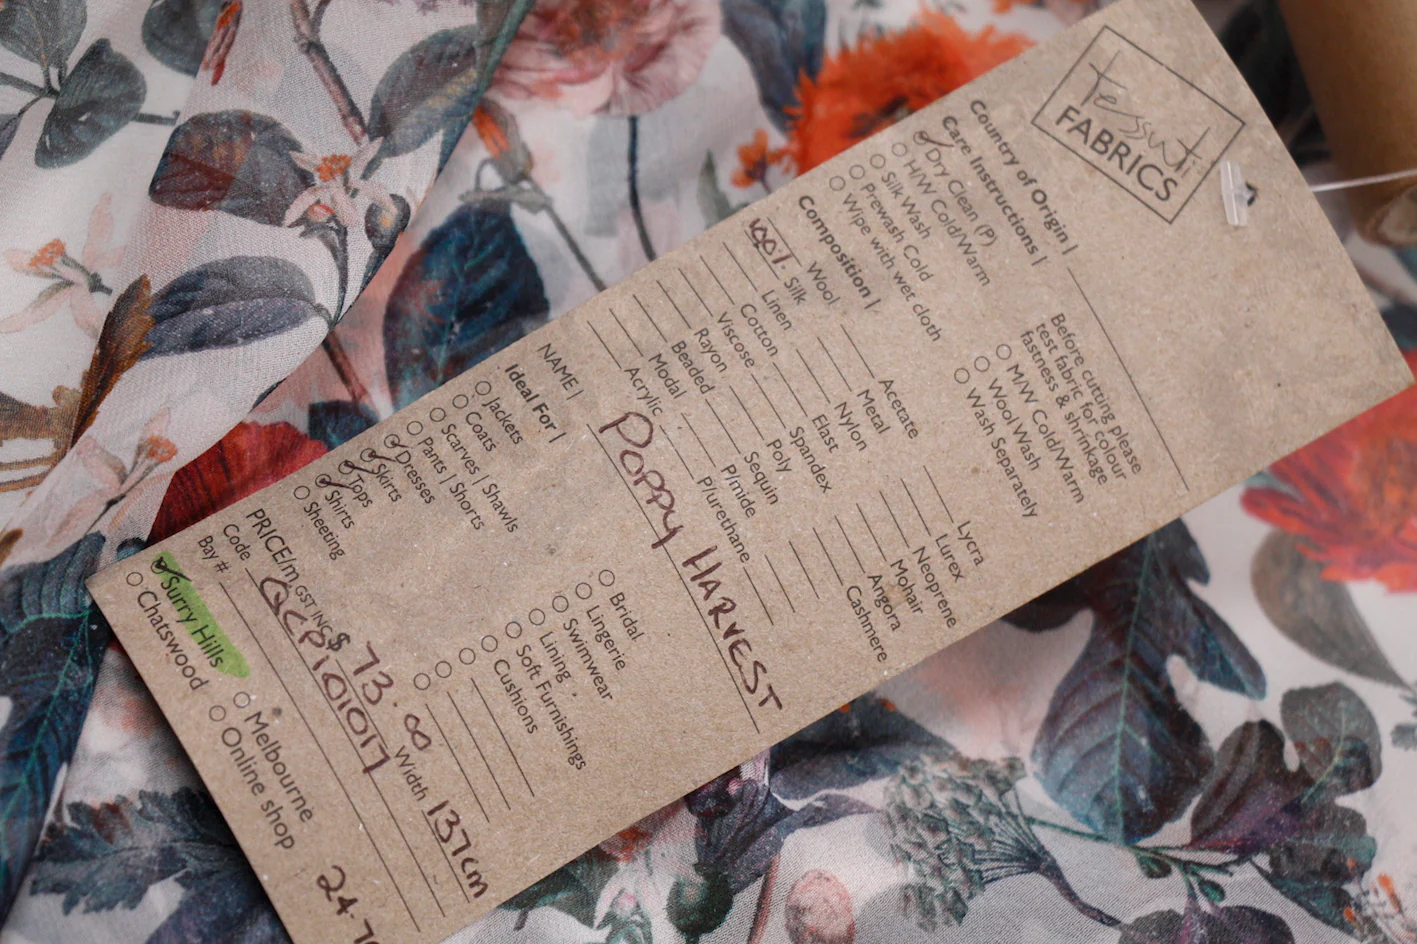 Tessuti
FABRICS
Country of Origin |
Care Instructions |
Dry Clean (P)
H/W Cold/Warm
Silk Wash
Prewash Cold
Wipe with wet cloth
Before cutting please
test fabric for colour
fastness & shrinkage
M/W Cold/Warm
Wool Wash
Wash Separately
Composition |
Wool
100% Silk
Linen
Cotton
Viscose
Rayon
Beaded
Modal
Acrylic
Acetate
Metal
Nylon
Elast
Spandex
Poly
Sequin
P/mide
P/urethane
Lycra
Lurex
Neoprene
Mohair
Angora
Cashmere
NAME | POPPY HARVEST
Ideal For |
Jackets
Coats
Scarves | Shawls
Pants | Shorts
Dresses
Skirts
Tops
Shirts
Sheeting
Bridal
Lingerie
Swimwear
Lining
Soft Furnishings
Cushions
PRICE/m GST INC $ 73.00 Width 137cm
Code QCP101017
Bay #
Surry Hills
Chatswood
Melbourne
Online shop